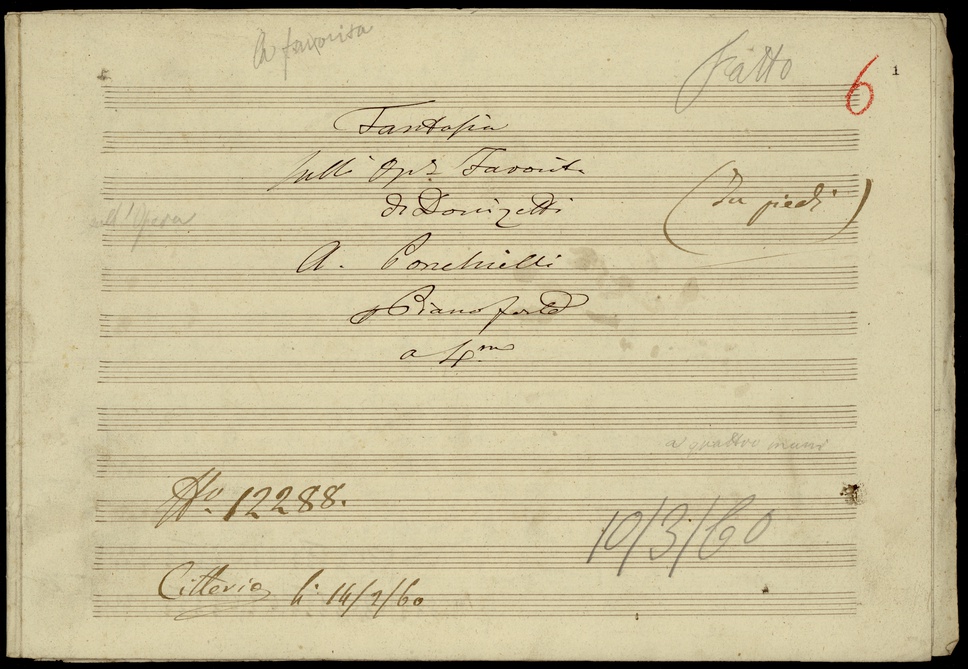 la favorita
Fatto
6
1
Fantasia
sull' Opa. Favorita
di Donizetti
(In piedi)
sull'Opera
A. Ponchielli
Pianoforte
a 4 ni
a quattro mani
No. 12288.
10/3/60
Citterio li 14/2/60